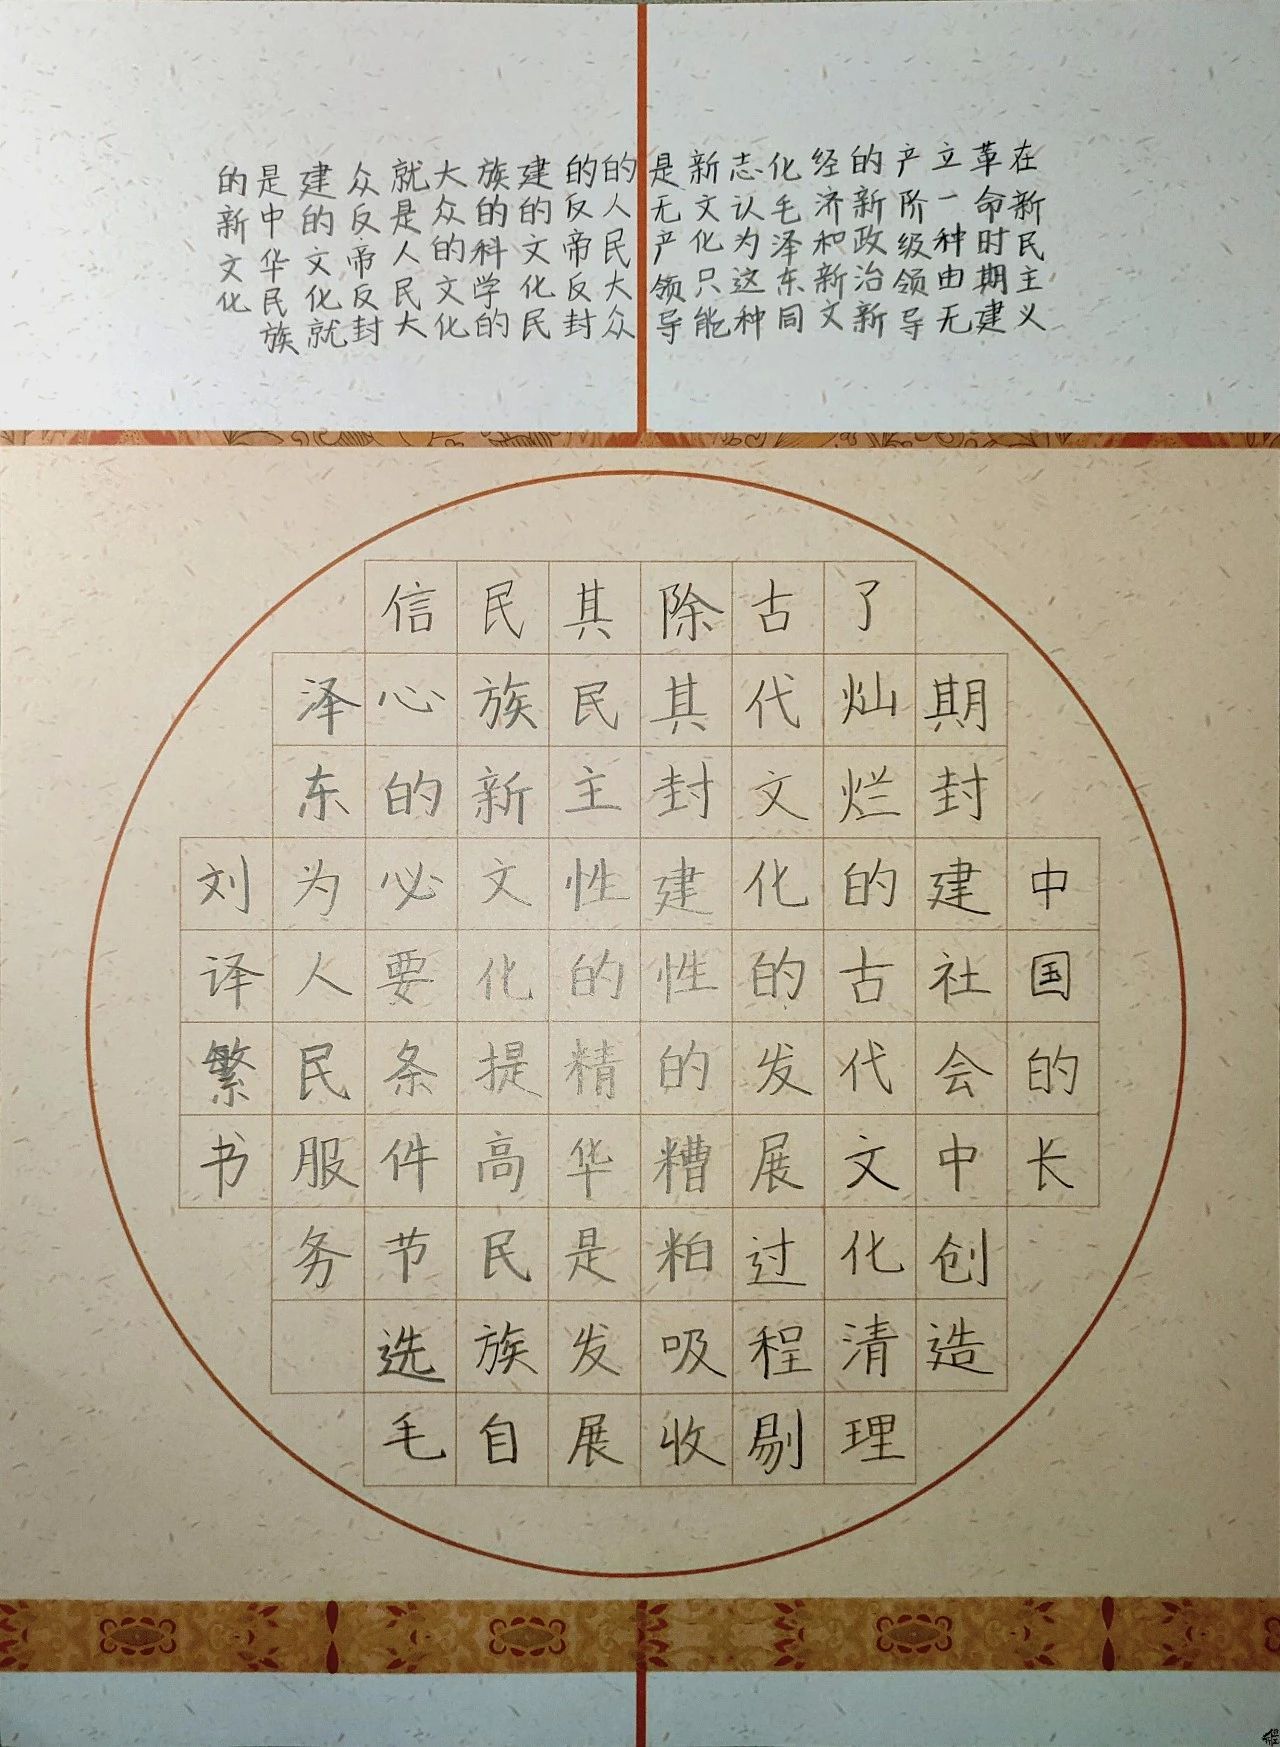 在新民主义
革命时期建
立一种由无
产阶级领导
的新政治新
经济和新文
化毛泽东同
志认为这种
新文化只能
是无产领导
的人民大众
的反帝反封
建的文化民
族的科学的
大众的文化
就是人民大
众反帝反封
建的文化就
是中华民族
的新文化
中国的长
期封建社会中创造
了灿烂的古代文化清理
古代文化的发展过程剔
除其封建性的糟粕吸收
其民主性的精华是发展
民族新文化提高民族自
信心的必要条件节选毛
泽东为人民服务
刘译繁书